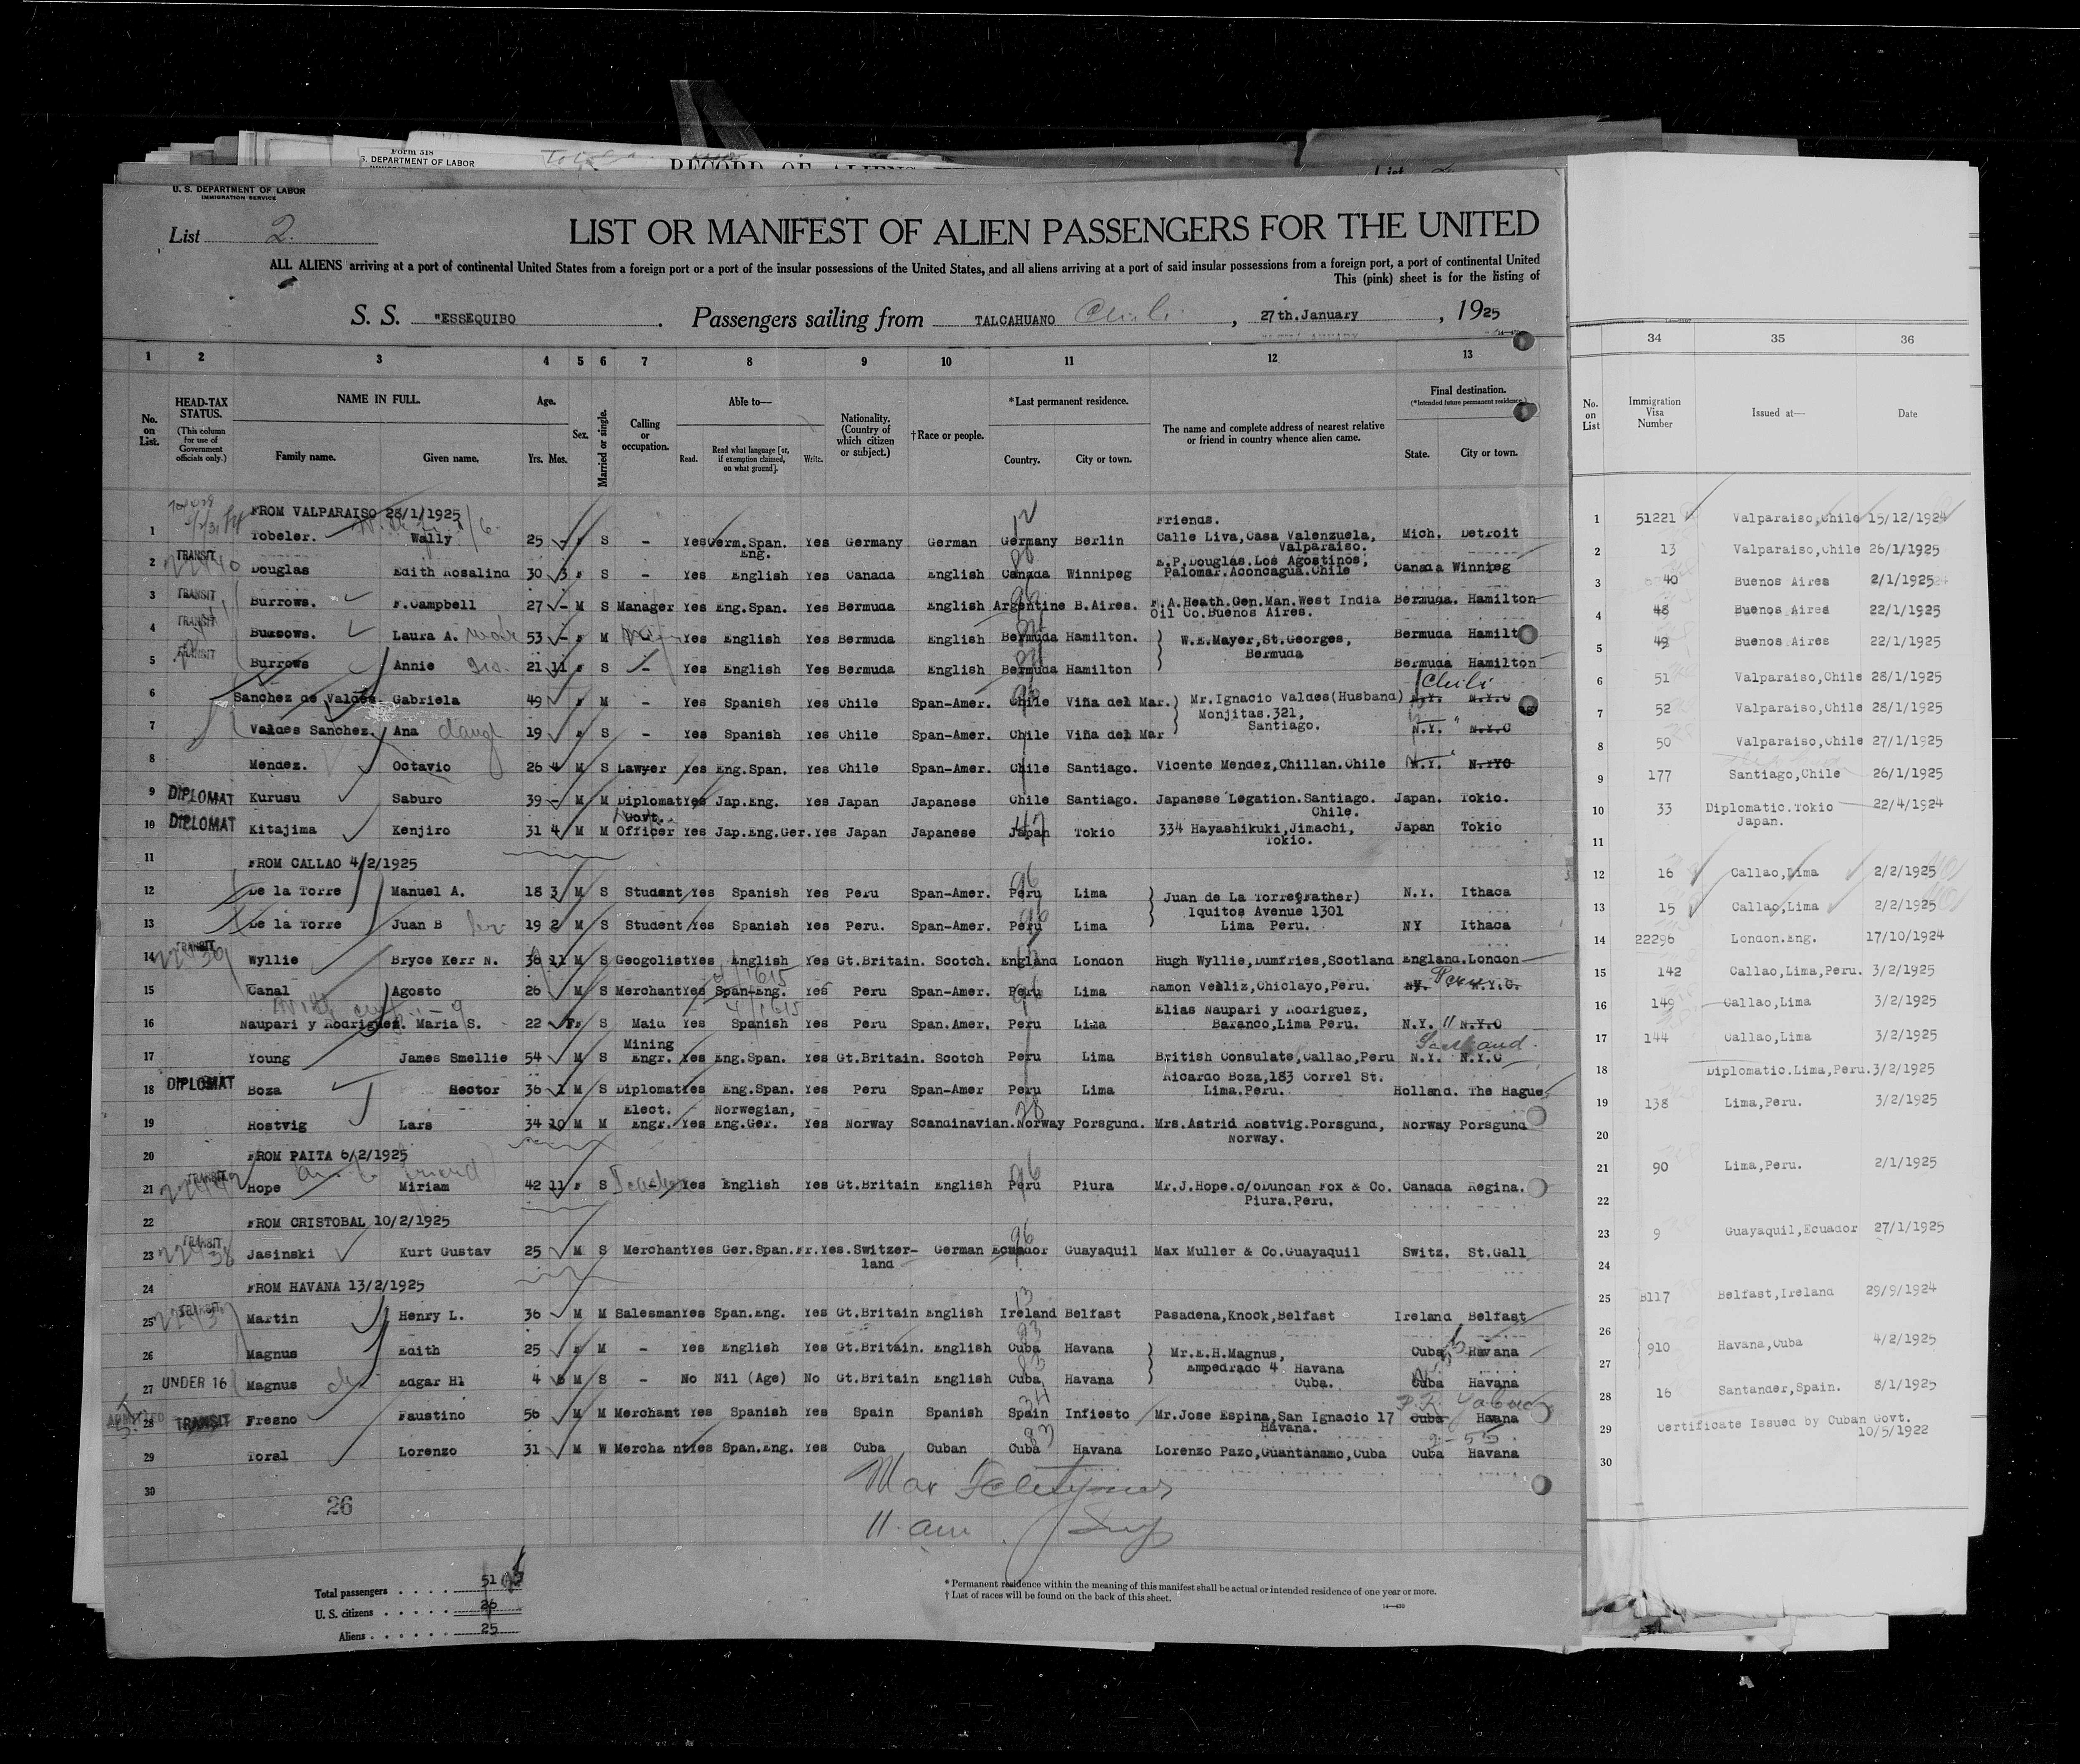 Form 518
S. DEPARTMENT OF LABOR
RECORD OF ALIENS
List
U. S. DEPARTMENT OF LABOR
IMMIGRATION SERVICE
List 2.
LIST OR MANIFEST OF ALIEN PASSENGERS FOR THE UNITED
ALL ALIENS arriving at a port of continental United States from a foreign port or a port of the insular possessions of the United States, and all aliens arriving at a port of said insular possessions from a foreign port, a port of continental United
This (pink) sheet is for the listing of
S. S. "ESSEQUIBO . Passengers sailing from TALCAHUANO Chili , 27th.January , 1925
1 2 3 4 5 6 7 8 9 10 11 12 13
No. on List. HEAD-TAX STATUS. (This column for use of Government officials only.) NAME IN FULL. Family name. Given name. Age. Yrs. Mos. Sex. Married or single. Calling or occupation. Able to— Read. Read what language [or, if exemption claimed, on what ground]. Write. Nationality. (Country of which citizen or subject.) †Race or people. *Last permanent residence. Country. City or town. The name and complete address of nearest relative or friend in country whence alien came. Final destination. (*Intended future permanent residence.) State. City or town.
FROM VALPARAISO 28/1/1925
1 Tobeler. Wally 25 - F S - Yes Germ.Span. Eng. Yes Germany German Germany Berlin Friends. Calle Liva,Casa Valenzuela, Valparaiso. Mich. Detroit
2 TRANSIT Douglas Edith Rosalind 30 3 F S - Yes English Yes Canada English Canada Winnipeg E.P.Douglas.Los Agostinos, Palomar.Aconcagua.Chile Canada Winnipeg
3 TRANSIT Burrows. F.Campbell 27 - M S Manager Yes Eng.Span. Yes Bermuda English Argentine B.Aires. F.A.Heath.Gen.Man.West India Oil Co.Buenos Aires. Bermuda. Hamilton
4 TRANSIT Burrows. Laura A. 53 - F M Yes English Yes Bermuda English Bermuda Hamilton. W.E.Mayer,St.Georges, Bermuda Bermuda Hamilt
5 TRANSIT Burrows Annie sis. 21 11 F S - Yes English Yes Bermuda English Bermuda Hamilton Bermuda Hamilton
6 Sanchez de Valdes. Gabriela 49 F M - Yes Spanish Yes Chile Span-Amer. Chile Viña del Mar. Mr.Ignacio Valdes(Husband) Monjitas.321, Santiago. Chili N.Y. N.Y.C
7 Valdes Sanchez. Ana daug 19 F S - Yes Spanish Yes Chile Span-Amer. Chile Viña del Mar N.Y. N.Y.C
8 Mendez. Octavio 26 4 M S Lawyer Yes Eng.Span. Yes Chile Span-Amer. Chile Santiago. Vicente Mendez,Chillan.Chile N.Y. N.YYC
9 DIPLOMAT Kurusu Saburo 39 - M M Diplomat Yes Jap.Eng. Yes Japan Japanese Chile Santiago. Japanese Legation.Santiago. Chile. Japan. Tokio.
10 DIPLOMAT Kitajima Kenjiro 31 4 M M Govt. Officer Yes Jap.Eng.Ger. Yes Japan Japanese Japan Tokio 334 Hayashikuki,Jimachi, Tokio. Japan Tokio
11 FROM CALLAO 4/2/1925
12 De la Torre Manuel A. 18 3 M S Student Yes Spanish Yes Peru Span-Amer. Peru Lima Juan de La Torre(Father) Iquitos Avenue 1301 Lima Peru. N.Y. Ithaca
13 De la Torre Juan B 19 2 M S Student Yes Spanish Yes Peru. Span-Amer. Peru Lima NY Ithaca
14 TRANSIT Wyllie Bryce Kerr N. 38 11 M S Geogolist Yes English Yes Gt.Britain. Scotch. England London Hugh Wyllie,Dumfries,Scotland England.London
15 Canal Agosto 26 M S Merchant Yes Span-Eng. Yes Peru Span-Amer. Peru Lima Ramon Veeliz,Chiclayo,Peru. NY. Peru N.Y.C.
16 Naupari y Rodriguez. Maria S. 22 F S Maid Yes Spanish Yes Peru Span.Amer. Peru Lima Elias Naupari y Rodriguez, Baranco,Lima Peru. N.Y. " N.Y.C
17 Young James Smellie 54 M S Mining Engr. Yes Eng.Span. Yes Gt.Britain. Scotch Peru Lima British Consulate,Callao,Peru Scotland. N.Y. N.Y.C
18 DIPLOMAT Boza Hector 36 1 M S Diplomat Yes Eng.Span. Yes Peru Span-Amer Peru Lima Ricardo Boza,183 Correl St. Lima.Peru. Holland. The Hague
19 Rostvig Lars 34 10 M M Elect. Engr. Yes Norwegian, Eng.Ger. Yes Norway Scandinavian. Norway Porsgund. Mrs.Astrid Rostvig.Porsgund, Norway. Norway Porsgund
20 FROM PAITA 6/2/1925
21 TRANSIT Hope Miriam 42 11 F S Teacher Yes English Yes Gt.Britain English Peru Piura Mr.J.Hope.c/oDuncan Fox & Co. Piura.Peru. Canada Regina.
22 FROM CRISTOBAL 10/2/1925
23 TRANSIT Jasinski Kurt Gustav 25 M S Merchant Yes Ger.Span.Fr. Yes. Switzer-land German Ecuador Guayaquil Max Muller & Co.Guayaquil Switz. St.Gall
24 FROM HAVANA 13/2/1925
25 TRANSIT Martin Henry L. 36 M M Salesman Yes Span.Eng. Yes Gt.Britain English Ireland Belfast Pasadena,Knock,Belfast Ireland Belfast
26 Magnus Edith 25 F M - Yes English Yes Gt.Britain. English Cuba Havana Mr.E.H.Magnus, Empedrado 4. Havana Cuba. Cuba Havana
27 UNDER 16 Magnus Edgar Hl 4 6 M S - No Nil (Age) No Gt.Britain English Cuba Havana Cuba Havana
28 ADMITTED TRANSIT Fresno Faustino 56 M M Merchant Yes Spanish Yes Spain Spanish Spain Infiesto Mr.Jose Espina,San Ignacio 17 Havana. Cuba Havana
29 Toral Lorenzo 31 M W Merchant Yes Span.Eng. Yes Cuba Cuban Cuba Havana Lorenzo Pazo,Guantanamo,Cuba Cuba Havana
30
26
11 am
Total passengers . . . . . 51
U. S. citizens . . . . . 26
Aliens . . . . . . 25
* Permanent residence within the meaning of this manifest shall be actual or intended residence of one year or more.
† List of races will be found on the back of this sheet.
14—430
34 35 36
No. on List Immigration Visa Number Issued at— Date
1 51221 Valparaiso,Chile 15/12/1924
2 13 Valparaiso,Chile 26/1/1925
3 40 Buenos Aires 2/1/1925
4 48 Buenos Aires 22/1/1925
5 49 Buenos Aires 22/1/1925
6 51 Valparaiso,Chile 28/1/1925
7 52 Valparaiso,Chile 28/1/1925
8 50 Valparaiso,Chile 27/1/1925
9 177 Santiago,Chile 26/1/1925
10 33 Diplomatic.Tokio Japan. 22/4/1924
11
12 16 Callao,Lima 2/2/1925
13 15 Callao,Lima 2/2/1925
14 22296 London.Eng. 17/10/1924
15 142 Callao,Lima,Peru. 3/2/1925
16 149 Callao,Lima 3/2/1925
17 144 Callao,Lima 3/2/1925
18 Diplomatic.Lima,Peru. 3/2/1925
19 138 Lima,Peru. 3/2/1925
20
21 90 Lima,Peru. 2/1/1925
22
23 9 Guayaquil,Ecuador 27/1/1925
24
25 8117 Belfast,Ireland 29/9/1924
26 910 Havana,Cuba 4/2/1925
27
28 16 Santander,Spain. 8/1/1925
29 Certificate Issued by Cuban Govt. 10/5/1922
30